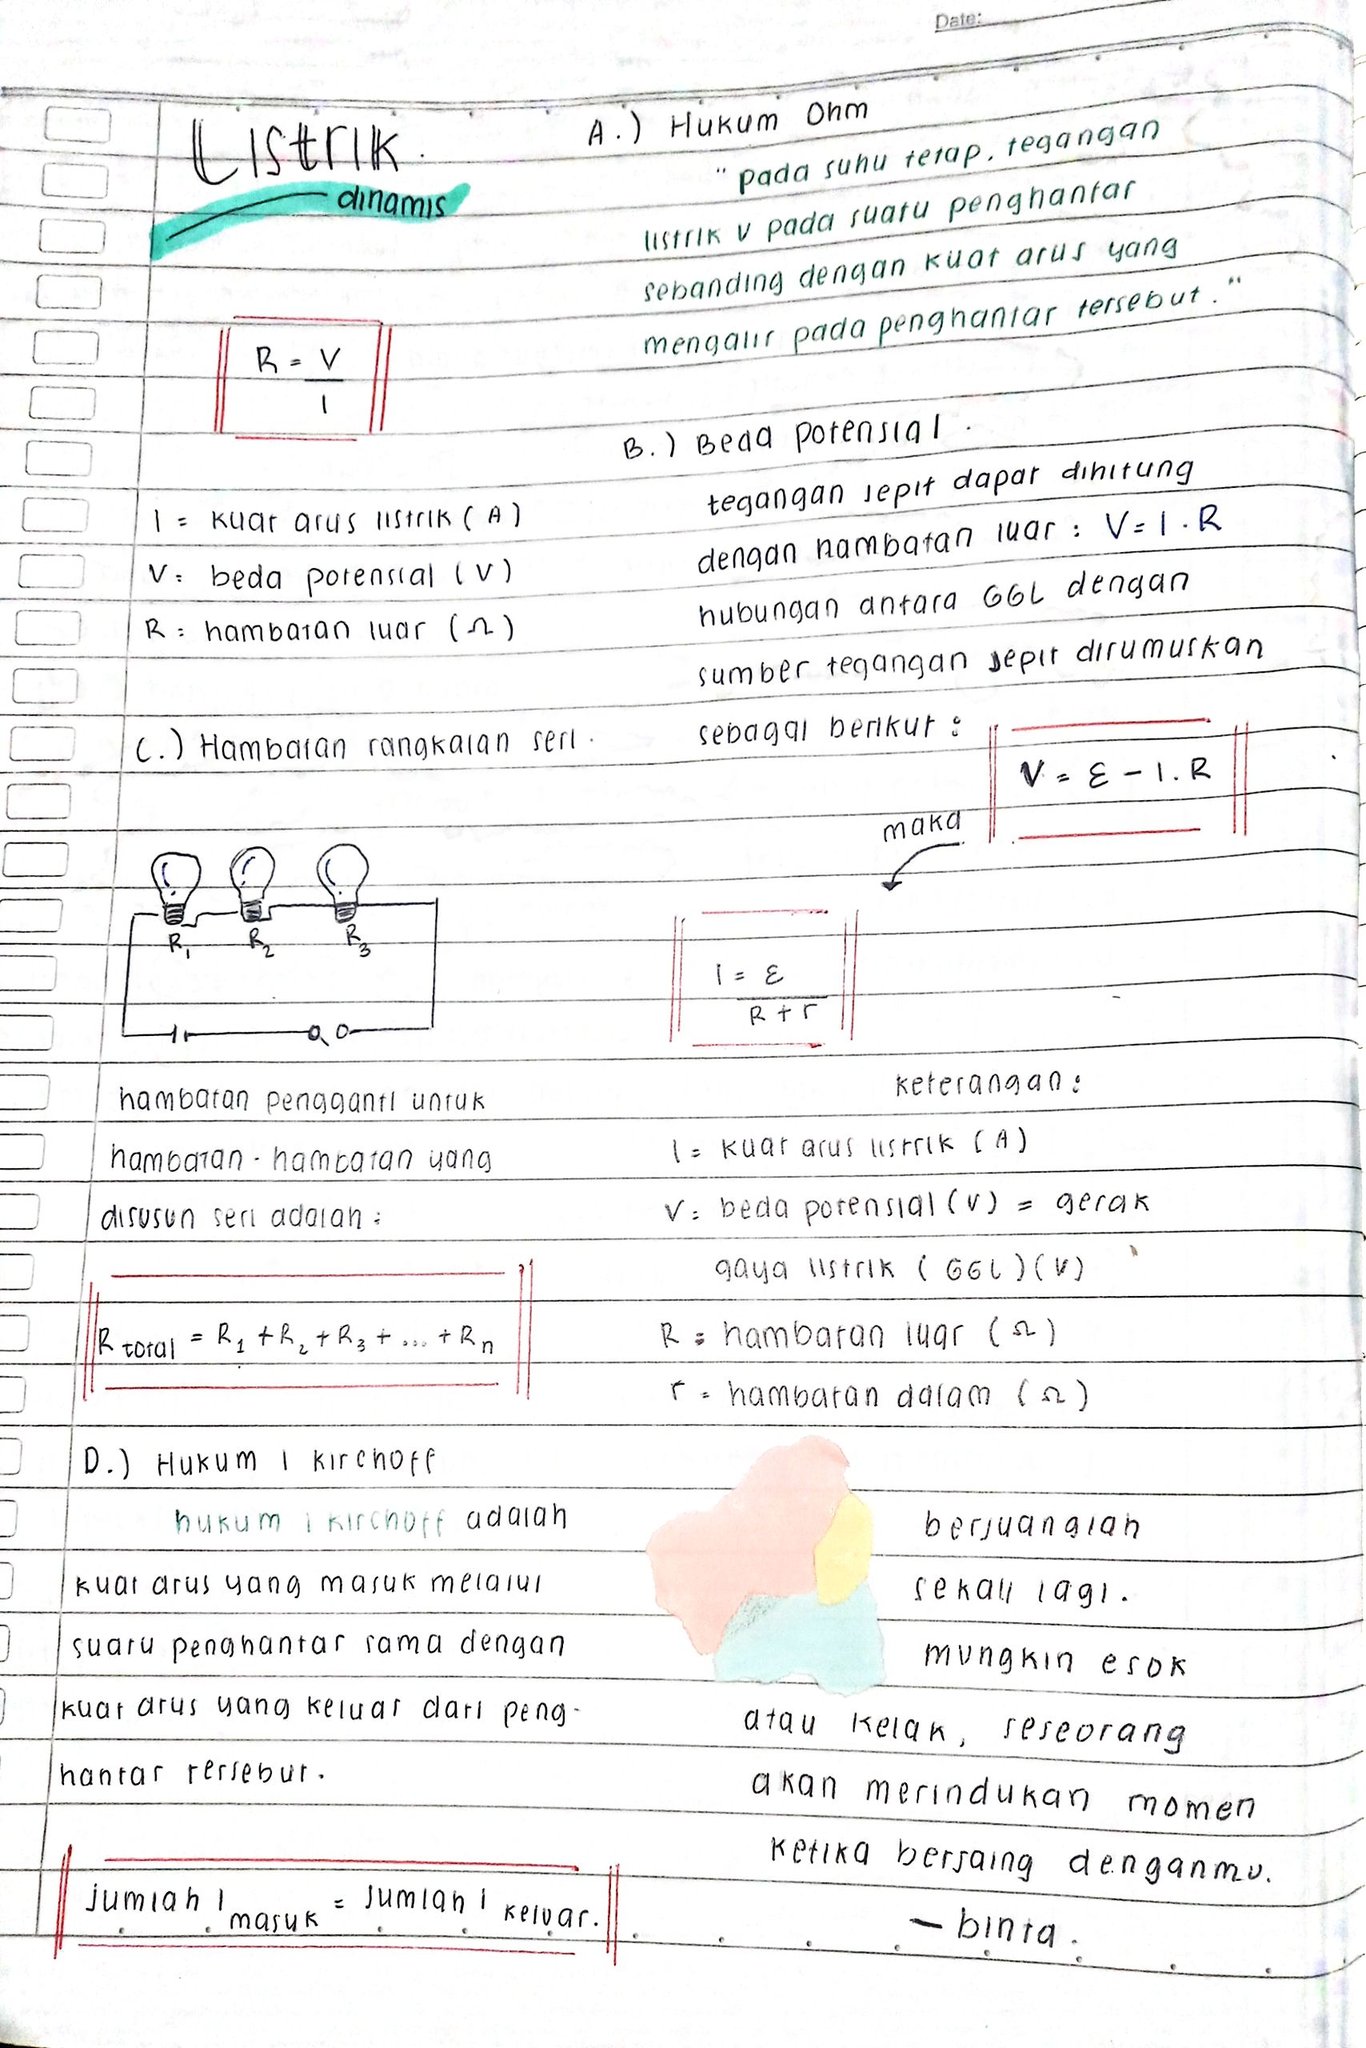 Date:
Listrik
dinamis
A.) Hukum Ohm
"pada suhu tetap, tegangan
listrik V pada suatu penghantar
sebanding dengan kuat arus yang
mengalir pada penghantar tersebut."
R = V
I
I = kuat arus listrik (A)
V = beda potensial (V)
R = hambatan luar (Ω)
B.) Beda potensial.
tegangan jepit dapat dihitung
dengan hambatan luar : V = I . R
hubungan antara GGL dengan
sumber tegangan jepit dirumuskan
sebagai berikut :
V = ε - I . R
maka
I = ε
R + r
keterangan :
I = kuat arus listrik (A)
V = beda potensial (V) = gerak
gaya listrik (GGL) (V)
R = hambatan luar (Ω)
r = hambatan dalam (Ω)
C.) Hambatan rangkaian seri.
R1 R2 R3
hambatan pengganti untuk
hambatan-hambatan yang
disusun seri adalah :
R total = R1 + R2 + R3 + ... + Rn
D.) Hukum I Kirchoff
hukum I kirchoff adalah
kuat arus yang masuk melalui
suatu penghantar sama dengan
kuat arus yang keluar dari peng-
hantar tersebut.
jumlah I masuk = jumlah I keluar.
berjuanglah
sekali lagi.
mungkin esok
atau kelak, seseorang
akan merindukan momen
ketika bersaing denganmu.
- binta.